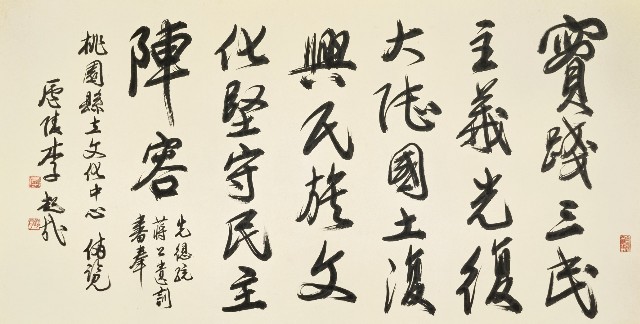 實踐三民
主義光復
大陸國土復
興民族文
化堅守民主
陣容
先總統
蔣公遺訓
書奉
桃園縣立文化中心
廬陵李超哉